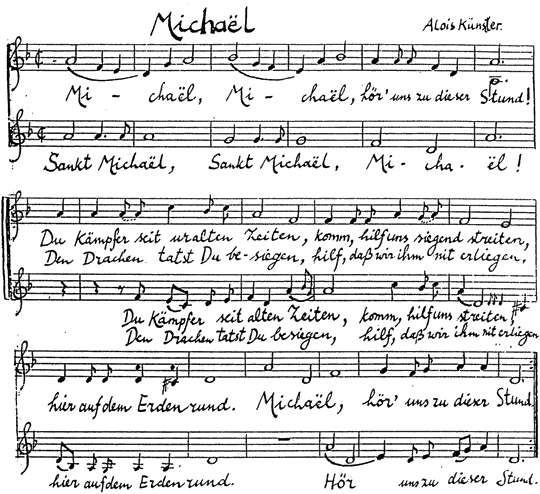 Michaël
Alois Künster.
Mi - chaël, Mi - chaël, hör' uns zu dieser Stund!
Sankt Michaël, Sankt Michaël, Mi - cha - ël!
Du Kämpfer seit uralten Zeiten, komm, hilf uns siegend streiten,
Den Drachen tatst Du be-siegen, hilf, daß wir ihm nit erliegen.
Du Kämpfer seit alten Zeiten, komm, hilf uns streiten
Den Drachen tatst Du besiegen, hilf, daß wir ihm nit erliegen
hier auf dem Erdenrund. Michaël, hör' uns zu dieser Stund
hier auf dem Erdenrund. Hör uns zu dieser Stund.